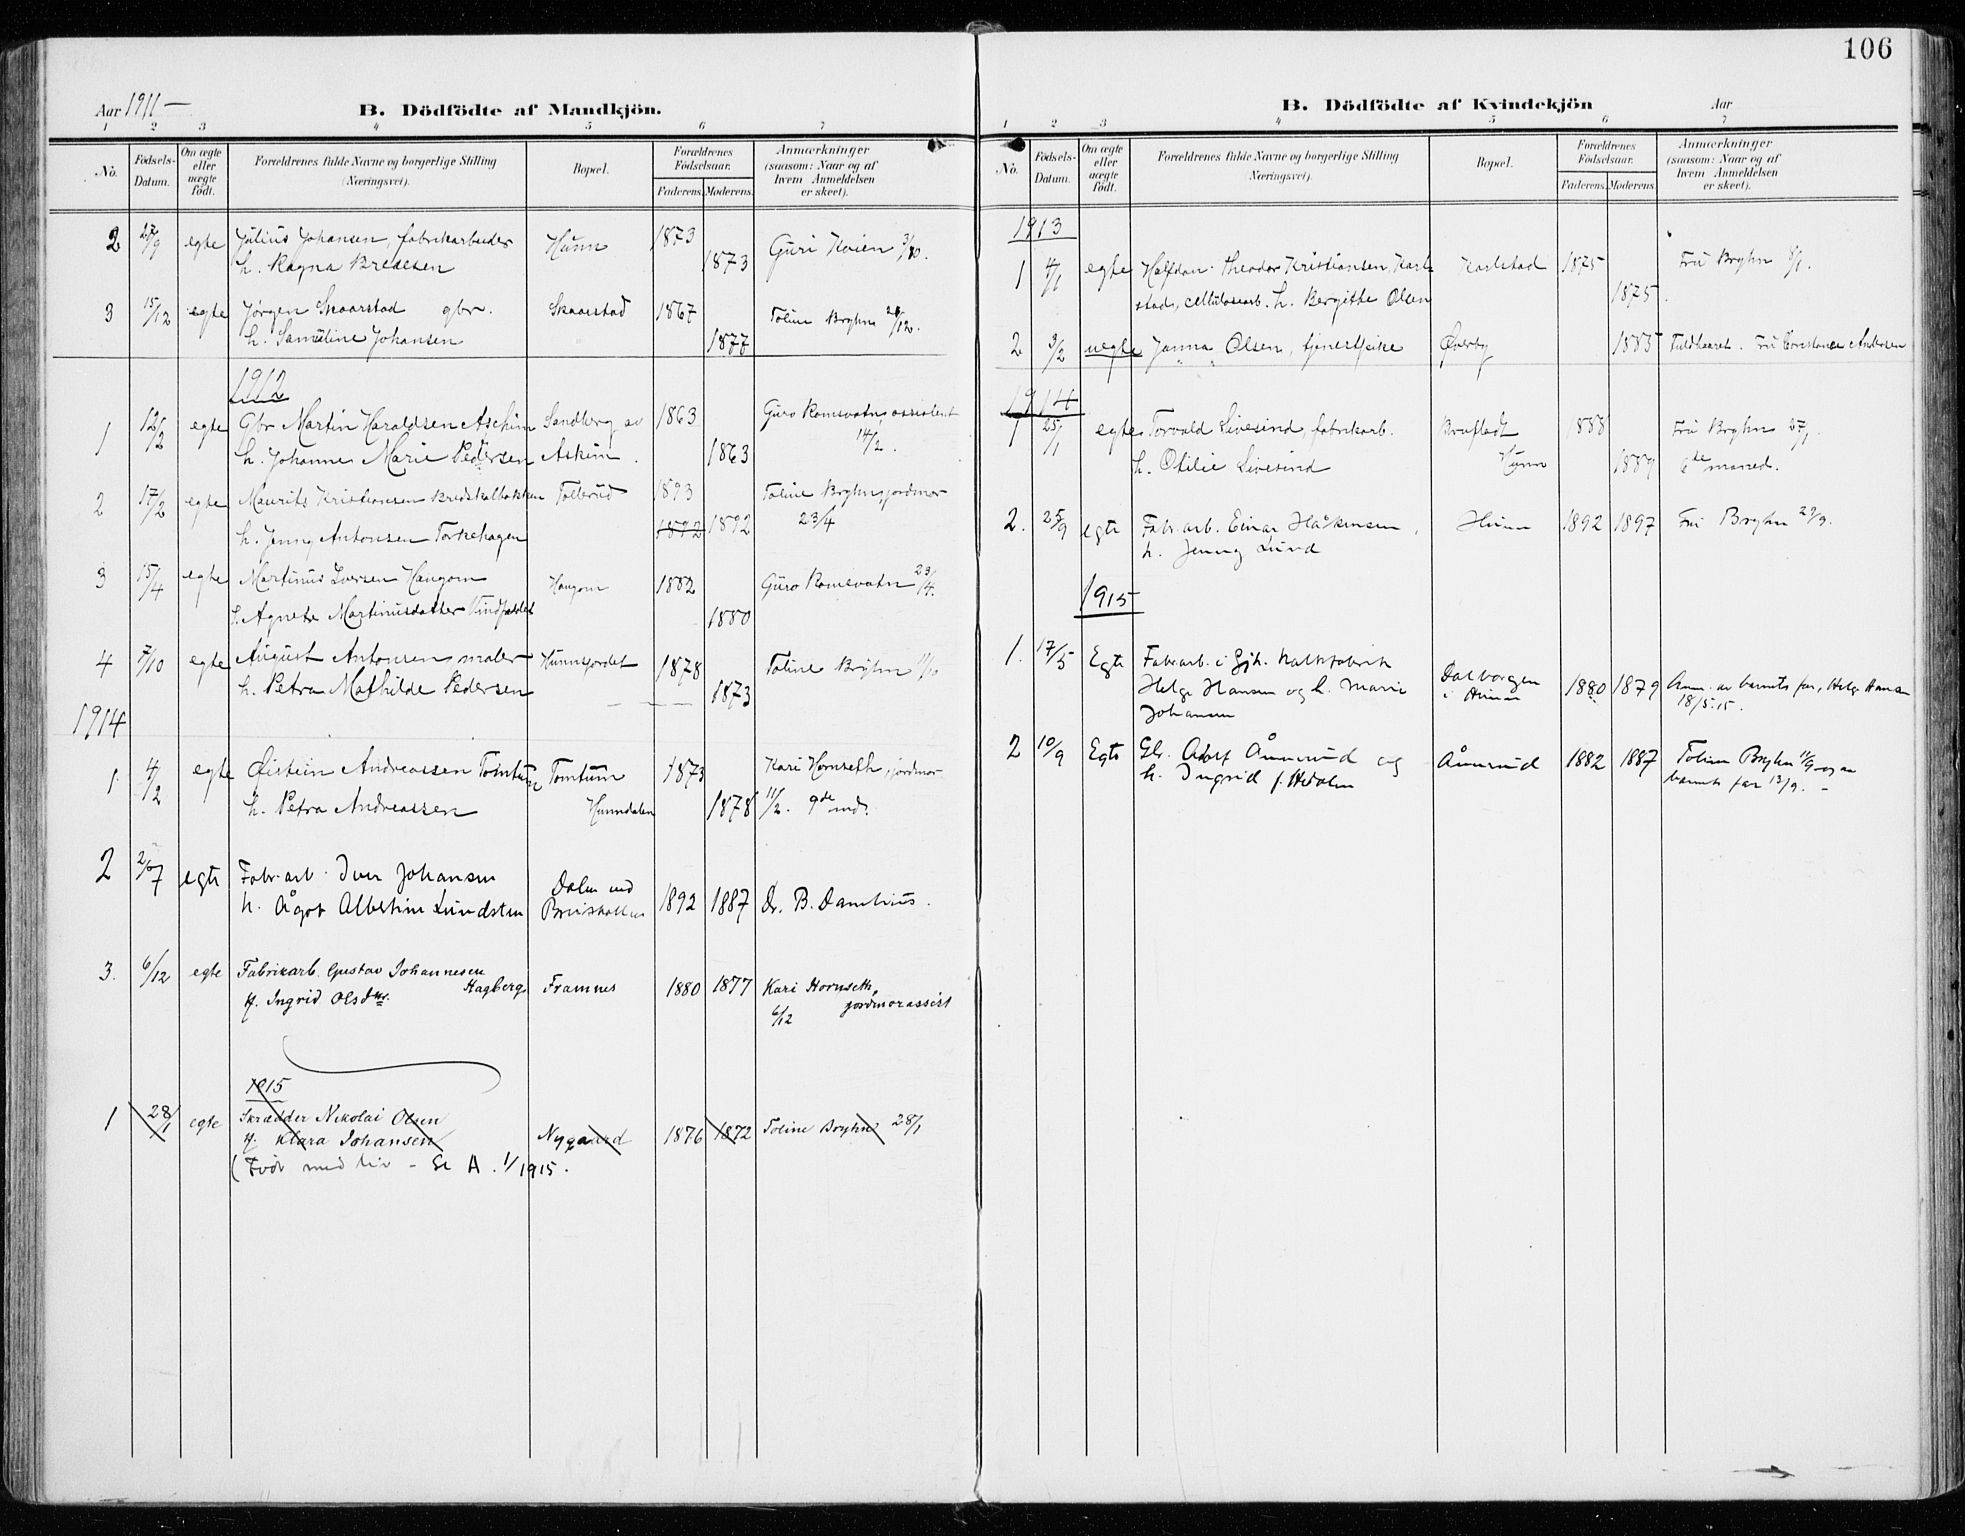 106
Aar 1911 —
B. Dödfödte af Mandkjön.
1 2 3 4 5 6 7
No. Födsels-Datum. Om ægte eller uægte födt. Forældrenes fulde Navne og borgerlige Stilling (Næringsvei). Bopæl. Forældrenes Födselsaar. Faderens. Moderens. Anmærkninger (saasom: Naar og af hvem Anmeldelsen er skeet).
2 27/9 egte Julius Johansen, fabrikarbeider Hunn 1873 Guri Kvien 3/10.
h. Ragna Bredesen 1873
3 15/12 egte Jørgen Skaarstad gbr. Skaarstad 1867 Toline Bryhn 28/12.
h. Samuline Johansen 1877
1912
1 12/2 egte Gbr Martin Haraldsen Aschim Sandberg av 1863 Guro Romsvatn, assistent
h. Johanne Marie Pedersen Askim. 1863 14/2.
2 17/2 egte Maurits Kristiansen Tollerud 1893 Toline Bryhn, jordmor
h. Jenny Antonsen Torkehagen 1892 1892 23/4
3 15/4 egte Martinus Iversen Haugom Haugom 1882 Guro Romsvatn 23/4.
h. Agnete Martinusdatter 1880
4 7/10 egte August Antonsen, maler Hunnsjordet 1878 Toline Bryhn 11/10
h. Petra Mathilde Pedersen 1873
1914
1 4/2 egte Øistein Andreassen Tomtum Tomtum 1873 Kari Hornseth, jordmor
h. Petra Andreassen Hunndalen 1878 11/2. 9de md.
2 2/7 egte Fabr.arb. Iver Johansen Dalen ved
h. Ågot Albertine Lundsten 1892 1887 Dr. B. Damhus.
3. 6/12 egte Fabrikarb. Gustav Johannesen
Hagberg Framnes 1880 1877 Kari Hornseth,
H. Ingrid Olsdtr. jordmorassist
6/12
1915
1 28/1 egte Skrædder Nikolai Olsen
H. Klara Johansen Nygaard 1876 1872 Toline Bryhn 28/1
(Født med liv - Se A. 1/1915.
B. Dödfödte af Kvindekjön Aar
1 2 3 4 5 6 7
No. Födsels-Datum. Om ægte eller uægte födt. Forældrenes fulde Navne og borgerlige Stilling (Næringsvei). Bopæl. Forældrenes Födselsaar. Faderens. Moderens. Anmærkninger (saasom: Naar og af hvem Anmeldelsen er skeet).
1913
1 4/1 egte Halfdan Theodor Kristiansen, Karl- Karlstad 1875 Fru Bryhn 8/1.
stad, cellulosearb. h. Bergitte Olsen 1875
2 3/2 uegte Janna Olsen, tjenestpike Øverby 1885 Fuldbaaret. Fru Constance Andersen
1914
1 25/1 egte Torvald Livesind, fabrikarb. Brufladt 1888 Fru Bryhn 27/1
h. Otilie Livesind Hunn 1889 6te maaned.
2. 25/9 egte Fabr.arb. Einar Håkensen, Hunn 1892 1897 Fru Bryhn 29/9.
h. Jenny Lund
1915
1. 17/5 Egte Fabr.arb. i Gjk. kalkfabrik
Helge Hansen og h. Marie Dalborgen i Hunn 1880 1879 Anm. av barnets far, Helge Hansen
Johansen 18/5.15.
2 10/9 Egte Gbr. Adolf Åmrud og Åmrud 1882 1887 Toline Bryhn 11/9 og av
h. Ingrid f. Hedalen barnets far 13/9. -